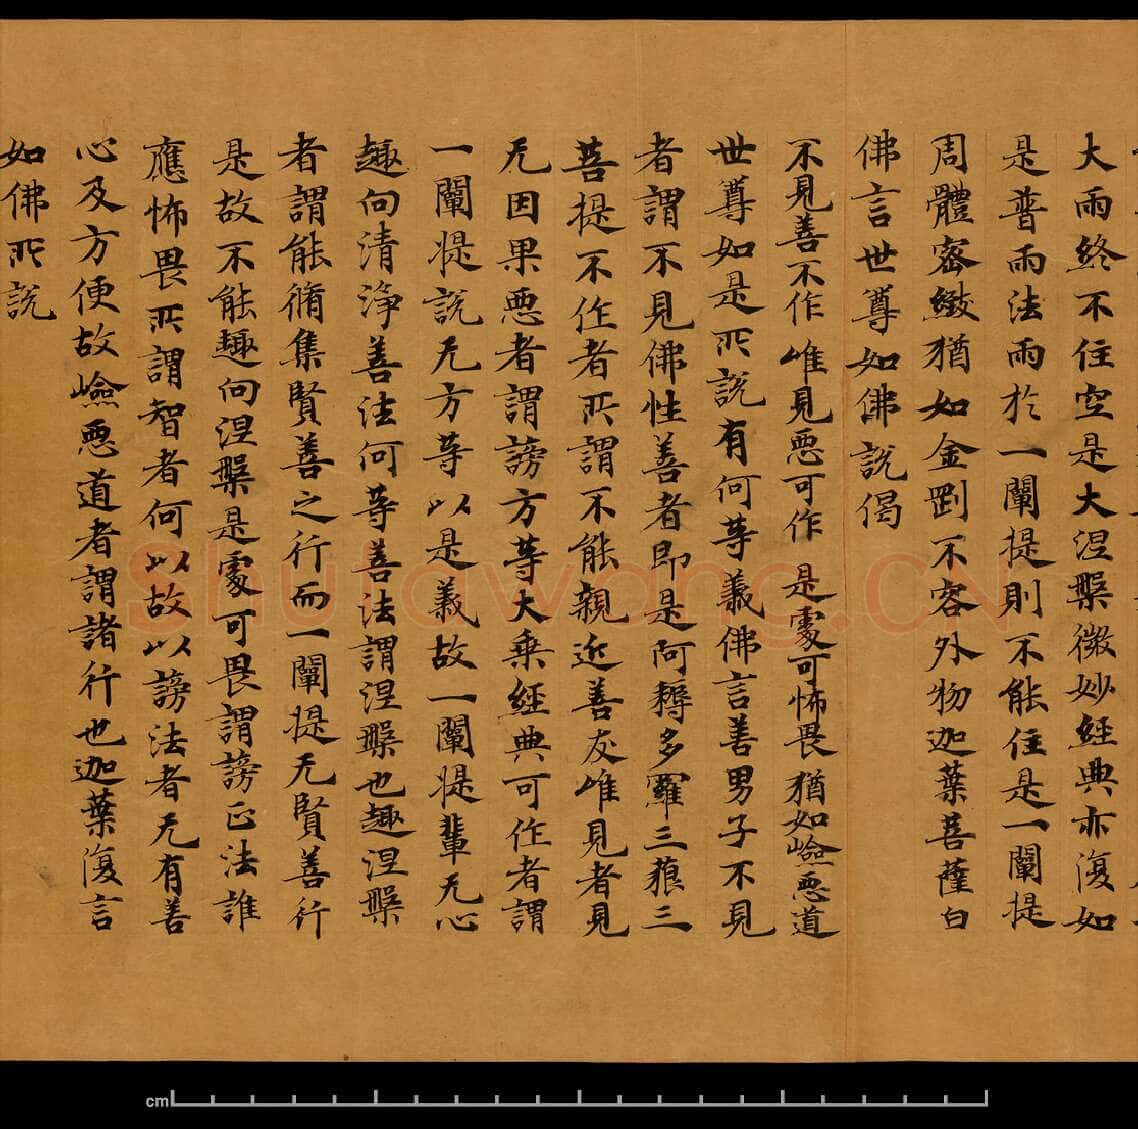 大雨終不住空是大涅槃微妙經典亦復如
是普雨法雨於一闡提則不能住是一闡提
周體密緻猶如金剛不容外物迦葉菩薩白
佛言世尊如佛說偈
不見善不作 唯見惡可作 是處可怖畏 猶如嶮惡道
世尊如是所說有何等義佛言善男子不見
者謂不見佛性善者即是阿耨多羅三藐三
菩提不作者所謂不能親近善友唯見者見
无因果惡者謂謗方等大乘經典可作者謂
一闡提說无方等以是義故一闡提輩无心
趣向清淨善法何等善法謂涅槃也趣涅槃
者謂能脩集賢善之行而一闡提无賢善行
是故不能趣向涅槃是處可畏謂謗正法誰
應怖畏所謂智者何以故以謗法者无有善
心及方便故嶮惡道者謂諸行也迦葉復言
如佛所說
Shufawang.CN
cm